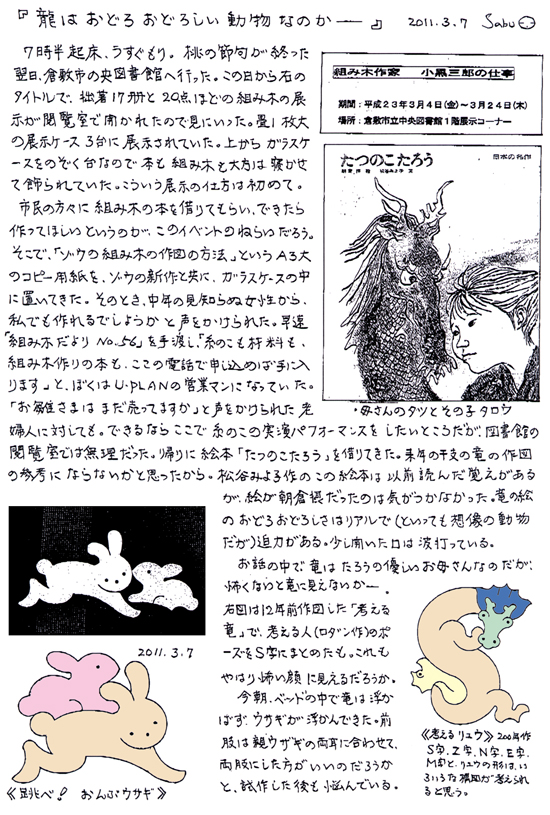 『龍はおどろおどろしい動物なのかー』 2011.3.7 Sabu
7時半起床、うすぐもり。桃の節句が終った
翌日、倉敷市の央図書館へ行った。この日から右の
タイトルで、拙著17冊と20点ほどの組み木の展
示が閲覧室で開かれたので見にいった。畳1枚大
の展示ケース3台に展示されていた。上からガラスケ
ースをのぞく台なので本も組み木も大方は寝かせ
て飾られていた。こういう展示の仕方は初めて。
市民の方々に組み木の本を借りてもらい、できたら
作ってほしいというのが、このイベントのねらいだろう。
そこで、「ゾウの組み木の作図の方法」というA3大
のコピー用紙を、ゾウの新作と共に、ガラスケースの中
に置いてきた。そのとき、中年の見知らぬ女性から、
私でも作れるでしょうかと声をかけられた。早速
「組み木だより No.56」を手渡し、「糸のこも材料も、
組み木作りの本も、ここの電話で申し込めば手に入
ります」と、ぼくはU-PLANの営業マンになっていた。
「お雛さまはまだ売ってますか」と声をかけられた老
婦人に対しても。できるならここで糸のこの実演パフォーマンスをしたいところだが、図書館の
閲覧室では無理だった。帰りに絵本「たつのこたろう」を借りてきた。来年の干支の竜の作図
の参考にならないかと思ったから。松谷みよ子作のこの絵本は以前読んだ覚えがある
が、絵が朝倉摂だったのは気がつかなかった。竜の絵
のおどろおどろしさはリアルで(といっても想像の動物
だが)迫力がある。少し開いた口は波打っている。
お話の中で竜はたろうの優しいお母さんなのだが、
怖くないと竜に見えないかー。
右図は12年前作図した「考える
竜」で、考える人(ロダン作)のポ
ーズをS字にまとめたも。これも
やはり怖い顔に見えるだろうか。
今朝、ベッドの中で竜は浮か
ばず、ウサギが浮かんできた。前
肢は親ウサギの両耳に合わせて、
両肢にした方がいいのだろうか
と、試作した後も悩んでいる。
組み木作家 小黒三郎の仕事
期間:平成23年3月4日(金)~3月24日(木)
場所:倉敷市立中央図書館1階展示コーナー
たつのこたろう
日本の名作
・母さんのタツとその子タロウ
2011.3.7
《跳べ! おんぶウサギ》
《考えるリュウ》2000年作
S字、Z字、N字、E字、
M字と、リュウの形は、い
ろいろな構図が考えられ
ると思う。